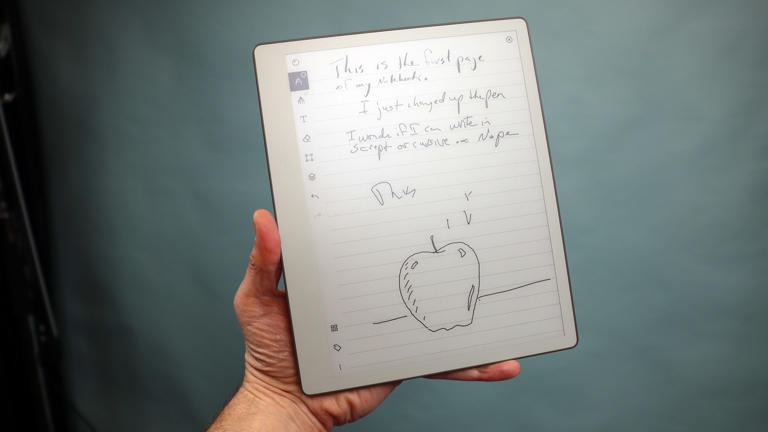 This is the first page
of my Notebook.
I just changed up the pen
I wonder if I can write in
script or cursive ... Nope
T